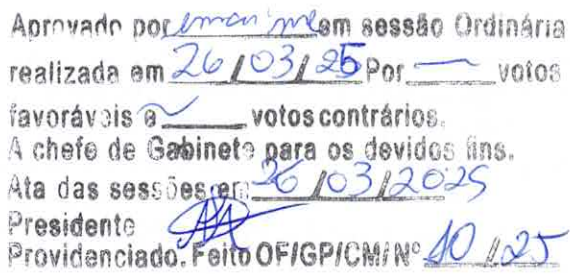 Aprovado por em sessão Ordinária
realizada em 26/03/25 Por — votos
favoráveis e ~ votos contrários.
A chefe de Gabinete para os devidos fins.
Ata das sessões em 26/03/2025
Presidente
Providenciado. Feito OF/GP/CM/Nº 10/25